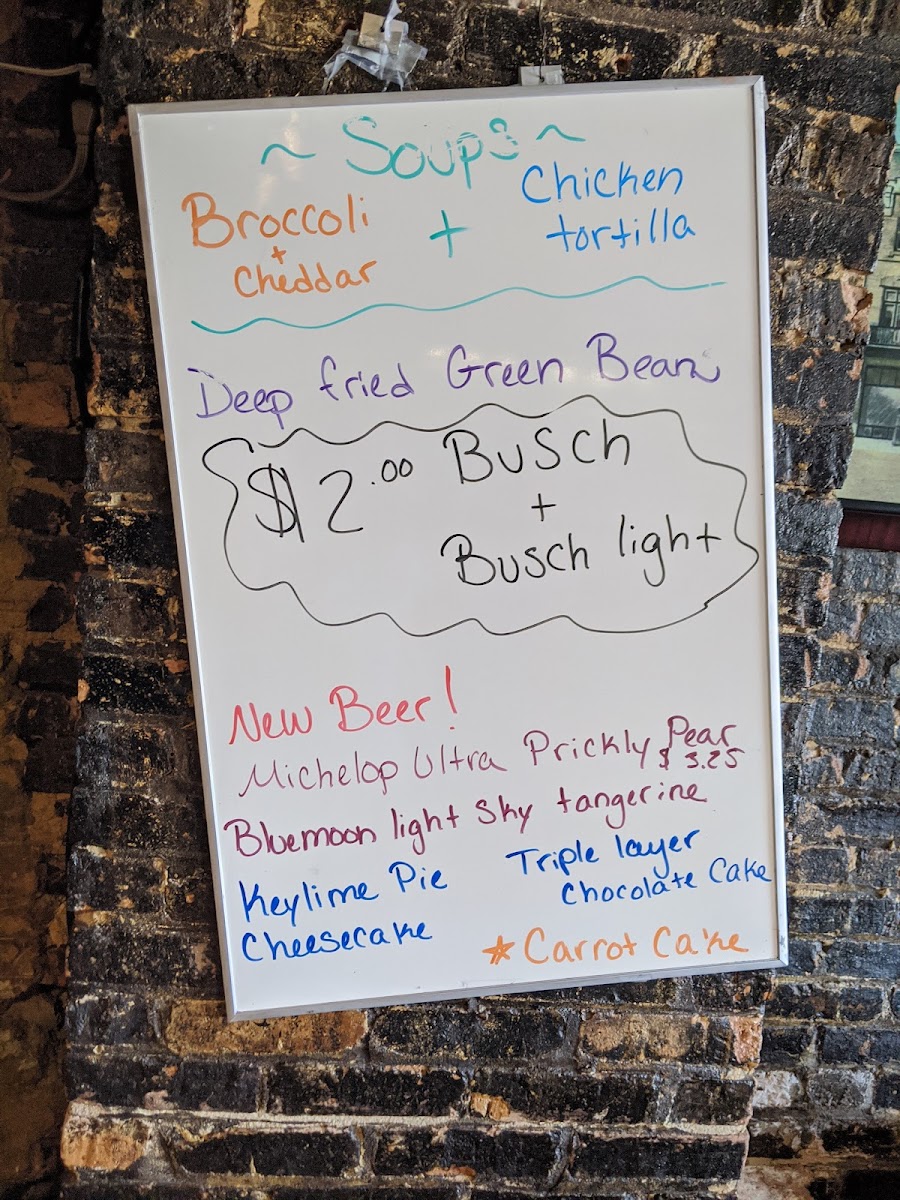 ~ Soups ~
Broccoli + Cheddar
+
Chicken tortilla
Deep fried Green Beans
$2.00 Busch
+
Busch light
New Beer!
Michelop Ultra Prickly Pear
$3.25
Bluemoon light Sky tangerine
Keylime Pie
Triple layer
Chocolate Cake
Cheesecake
* Carrot Cake